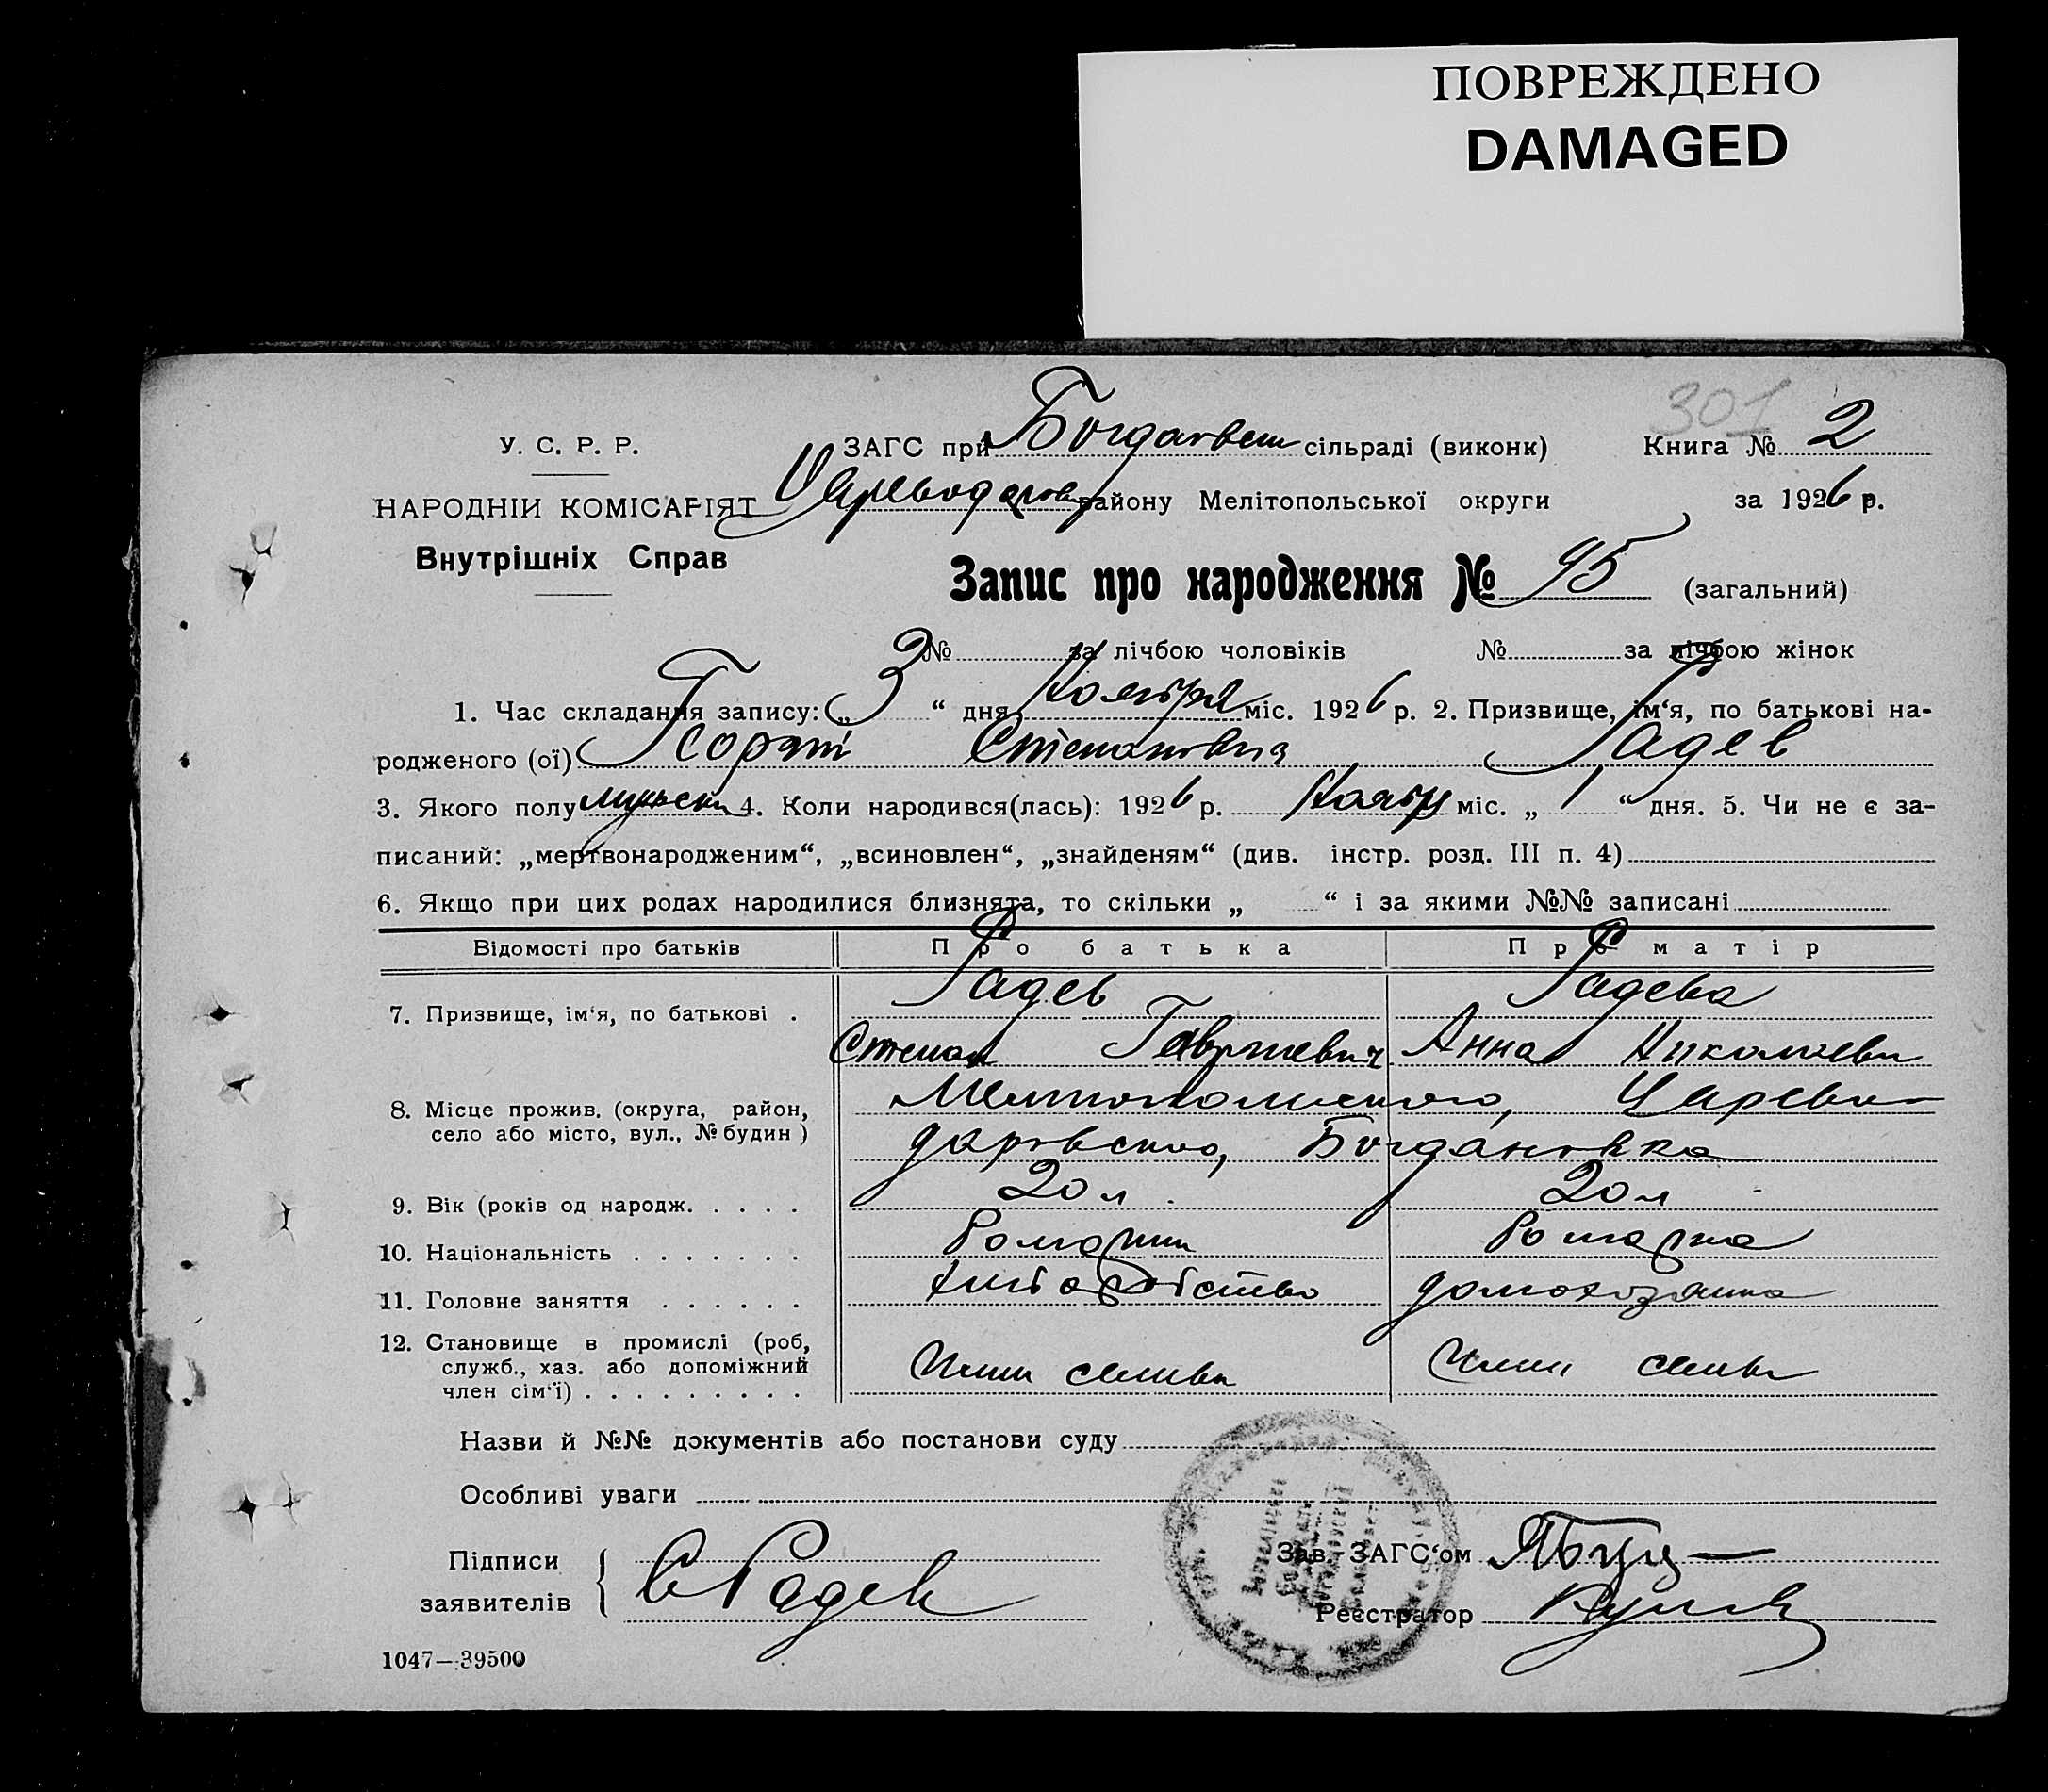 ПОВРЕЖДЕНО
DAMAGED
301
У. С. Р. Р. ЗАГС при сільраді (виконк) Книга № 2
НАРОДНІЙ КОМІСАРІЯТ району Мелітопольської округи за 1926 р.
Внутрішніх Справ
Запис про народження № 95 (загальний)
№ за лічбою чоловіків № за лічбою жінок
1. Час складання запису: „ 3 “ дня Ноября міс. 1926 р. 2. Призвище, ім‘я, по батькові на-
родженого (ої) Степанович Радев
3. Якого полу 4. Коли народився(лась): 1926 р. Ноября міс. „ 1 “ дня. 5. Чи не є за-
писаний: „мертвонародженим“, „всиновлен“, „знайденям“ (див. інстр. розд. III п. 4)
6. Якщо при цих родах народилися близнята, то скільки „ “ і за якими №№ записані
Відомості про батьків Про батька Про матір
7. Призвище, ім‘я, по батькові . Радев Радева
Степан Анна
8. Місце прожив. (округа, район, село або місто, вул., № будин) Мелитопольского, Царево-
даровского, Богдановка
9. Вік (років од народж. . . . . 20 л. 20 л
10. Національність . . . . . . .
11. Головне заняття . . . . . . хлеборобство домохозяйка
12. Становище в промислі (роб, служб., хаз. або допоміжний член сім‘ї) . . . . . . . . .
Назви й №№ документів або постанови суду
Особливі уваги
Підписи заявителів С Радев
Зав. ЗАГС‘ом
Реєстратор
1047—39500